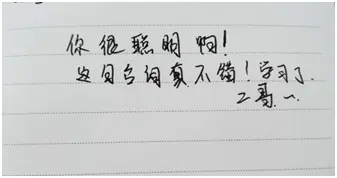 你很聪明啊!
这句台词真不错!学习了.
二哥